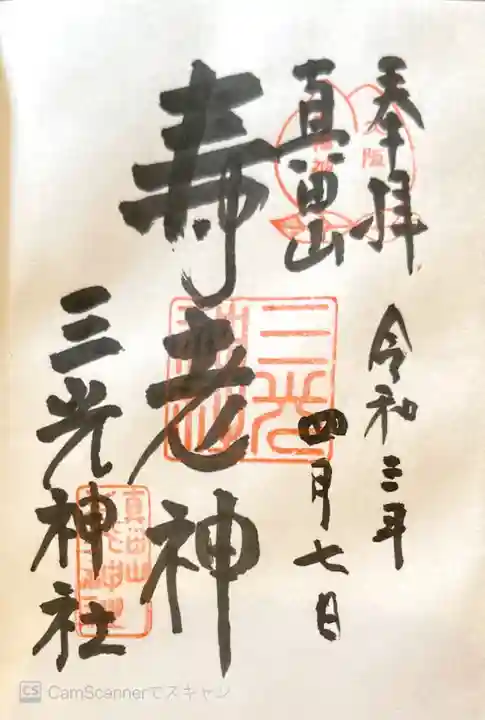 奉拝
令和三年
四月七日
真田山
寿老神
三光神社
大阪
三光
神社
真田山
CamScannerでスキャン